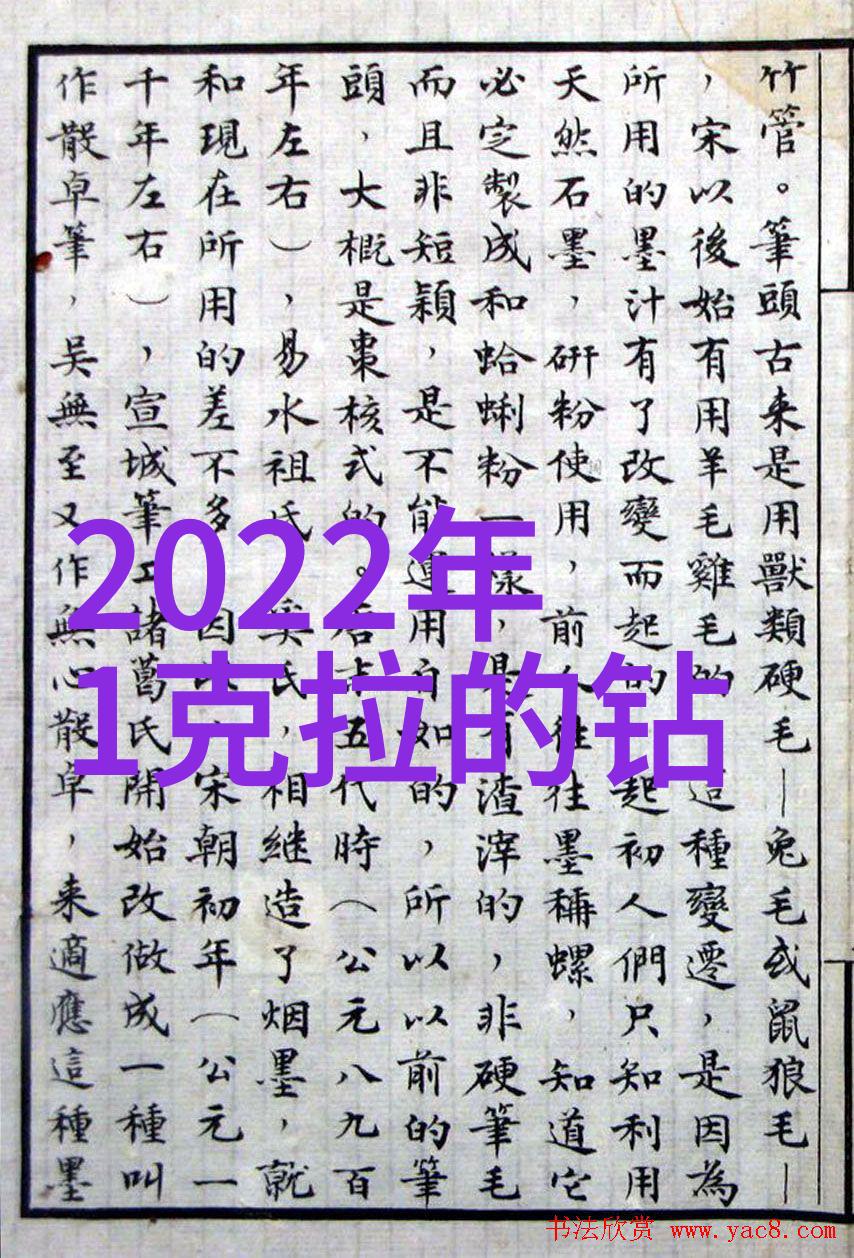 竹管。筆頭古来是用獸類硬毛—兔毛或鼠狼毛—
，宋以後始有用羊毛雞毛的這種變遷，是因為
所用的墨汁有了改變而起的起初人們只知利用
天然石墨，研粉使用，前人往往墨稱螺，知道它
必定製成和蛤蜊粉一樣，是有渣滓的，非硬筆毛
而且非短穎，是不能運用自如的，所以以前的筆
頭，大概是棗核式的。五代時（公元八九百
年左右），易水祖氏奚氏，相继造了烟墨，就
和現在所用的差不多因宋朝初年（公元一
千年左右），宣城筆工諸葛氏開始改做成一種叫
作散卓筆，吴無至又作無心散卓，来適應這種墨
2022年
1克拉的钻
书法欣赏 www.yac8.com